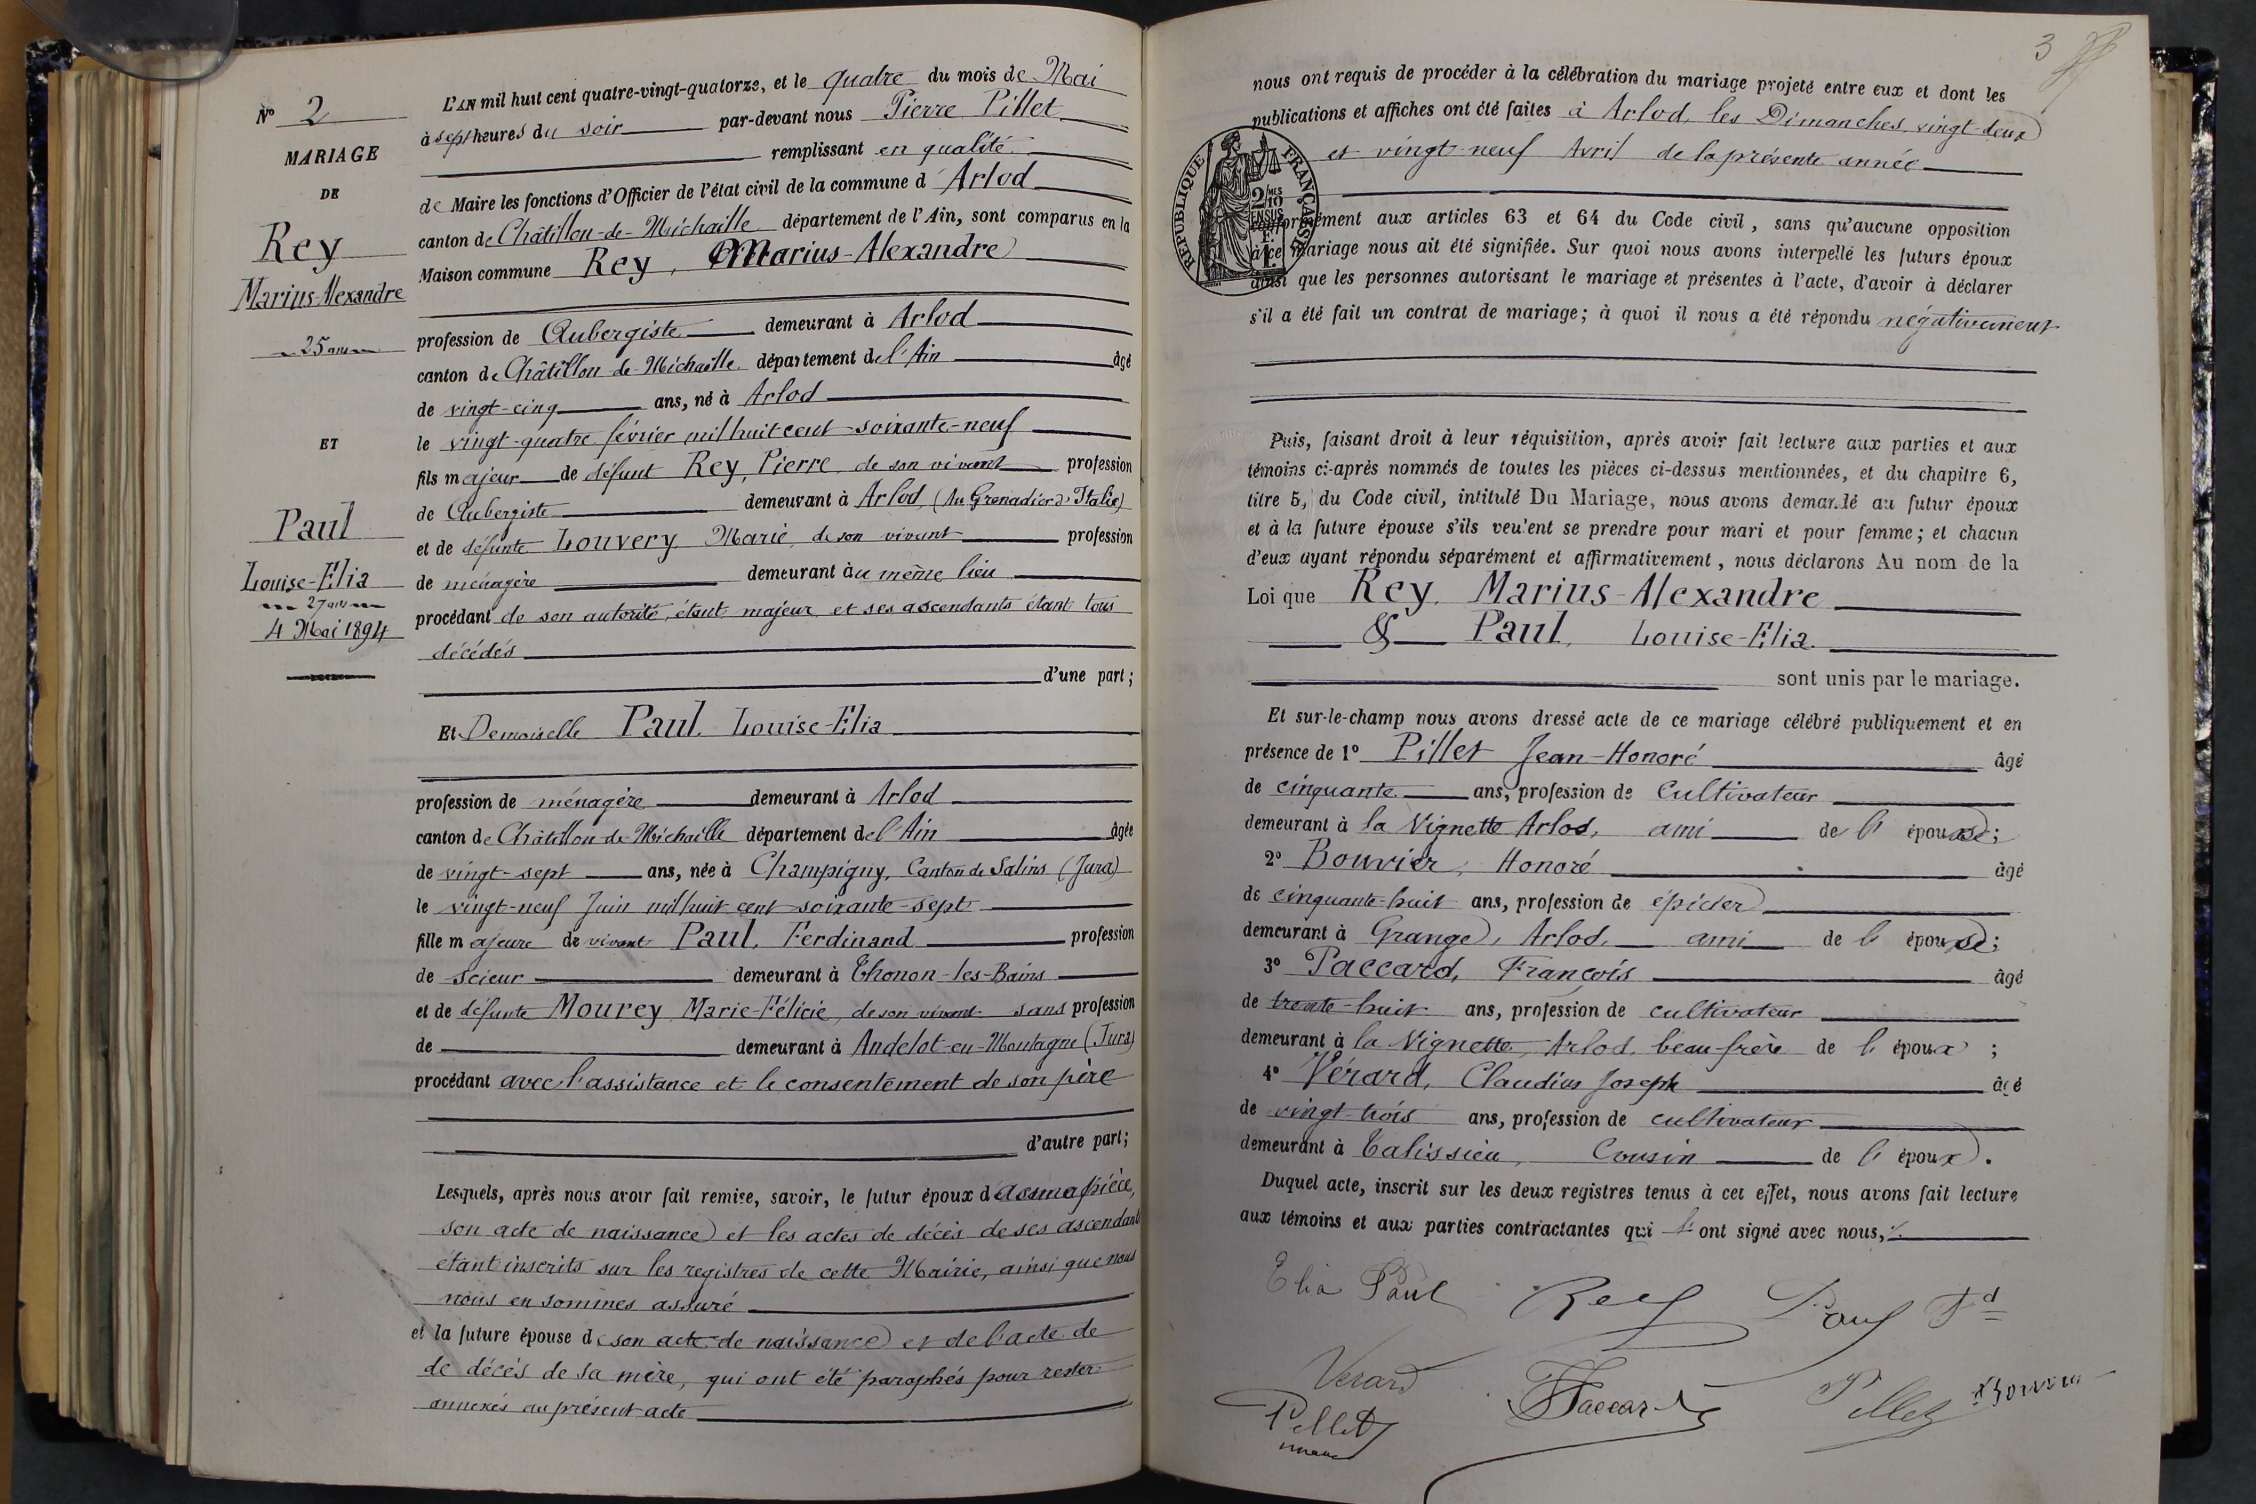 N° 2
MARIAGE
DE
Rey
Marius-Alexandre
25 ans
ET
Paul
Louise-Elia
27 ans
4 Mai 1894
L'AN mil huit cent quatre-vingt-quatorze, et le quatre du mois de Mai
à sept heures du soir par-devant nous Pierre Pillet
remplissant en qualité
de Maire les fonctions d'Officier de l'état civil de la commune d'Arlod
canton de Châtillon-de-Michaille département de l'Ain, sont comparus en la
Maison commune Rey, Marius-Alexandre
profession de Aubergiste demeurant à Arlod
canton de Châtillon de Michaille département de l'Ain âgé
de vingt-cinq ans, né à Arlod
le vingt-quatre février mil huit cent soixante-neuf
fils majeur de défunt Rey, Pierre, de son vivant profession
de Aubergiste demeurant à Arlod, (Au Grenadier d'Italie)
et de défunte Louvery Marie, de son vivant profession
de ménagère demeurant àu même lieu
procédant de son autorité, étant majeur et ses ascendants étant tous
décédés
d'une part;
Et Demoiselle Paul, Louise-Elia
profession de ménagère demeurant à Arlod
canton de Châtillon de Michaille département de l'Ain âgée
de vingt-sept ans, née à Champigny, Canton de Salins (Jura)
le vingt-neuf Juin mil huit cent soixante-sept
fille majeure de vivant Paul, Ferdinand profession
de scieur demeurant à Thonon-les-Bains
et de défunte Mourey Marie-Félicie, de son vivant sans profession
de demeurant à Andelot-en-Montagne (Jura)
procédant avec l'assistance et le consentement de son père
d'autre part;
Lesquels, après nous avoir fait remise, savoir, le futur époux d'aucune pièce,
son acte de naissance et les actes de décès de ses ascendants
étant inscrits sur les registres de cette Mairie, ainsi que nous
nous en sommes assuré
et la future épouse de son acte de naissance et de l'acte de
de décès de sa mère, qui ont été paraphés pour rester
annexés au présent acte
3
nous ont requis de procéder à la célébration du mariage projeté entre eux et dont les
publications et affiches ont été faites à Arlod, les Dimanches vingt-deux
et vingt-neuf Avril de la présente année
RÉPUBLIQUE FRANÇAISE
2/10 EN SUS
conformément aux articles 63 et 64 du Code civil, sans qu'aucune opposition
à ce mariage nous ait été signifiée. Sur quoi nous avons interpellé les futurs époux
ainsi que les personnes autorisant le mariage et présentes à l'acte, d'avoir à déclarer
s'il a été fait un contrat de mariage; à quoi il nous a été répondu négativement
Puis, faisant droit à leur réquisition, après avoir fait lecture aux parties et aux
témoins ci-après nommés de toutes les pièces ci-dessus mentionnées, et du chapitre 6,
titre 5, du Code civil, intitulé Du Mariage, nous avons demandé au futur époux
et à la future épouse s'ils veulent se prendre pour mari et pour femme; et chacun
d'eux ayant répondu séparément et affirmativement, nous déclarons Au nom de la
Loi que Rey, Marius-Alexandre
& Paul, Louise-Elia
sont unis par le mariage.
Et sur-le-champ nous avons dressé acte de ce mariage célébré publiquement et en
présence de 1° Pillet Jean-Honoré âgé
de cinquante ans, profession de Cultivateur
demeurant à la Vignette Arlod, ami de l'épouse;
2° Bouvier, Honoré âgé
de cinquante-huit ans, profession de épicier
demeurant à Grange, Arlod, ami de l'épouse;
3° Paccard, François âgé
de trente-huit ans, profession de cultivateur
demeurant à la Vignette, Arlod, beau-frère de l'époux;
4° Vérard, Claudius Joseph âgé
de vingt-trois ans, profession de cultivateur
demeurant à Talissieu, Cousin de l'époux.
Duquel acte, inscrit sur les deux registres tenus à cet effet, nous avons fait lecture
aux témoins et aux parties contractantes qui l'ont signé avec nous,
Elia Paul Rey Paul Fd
Verard Paccard Pillet Bouvier
Pillet